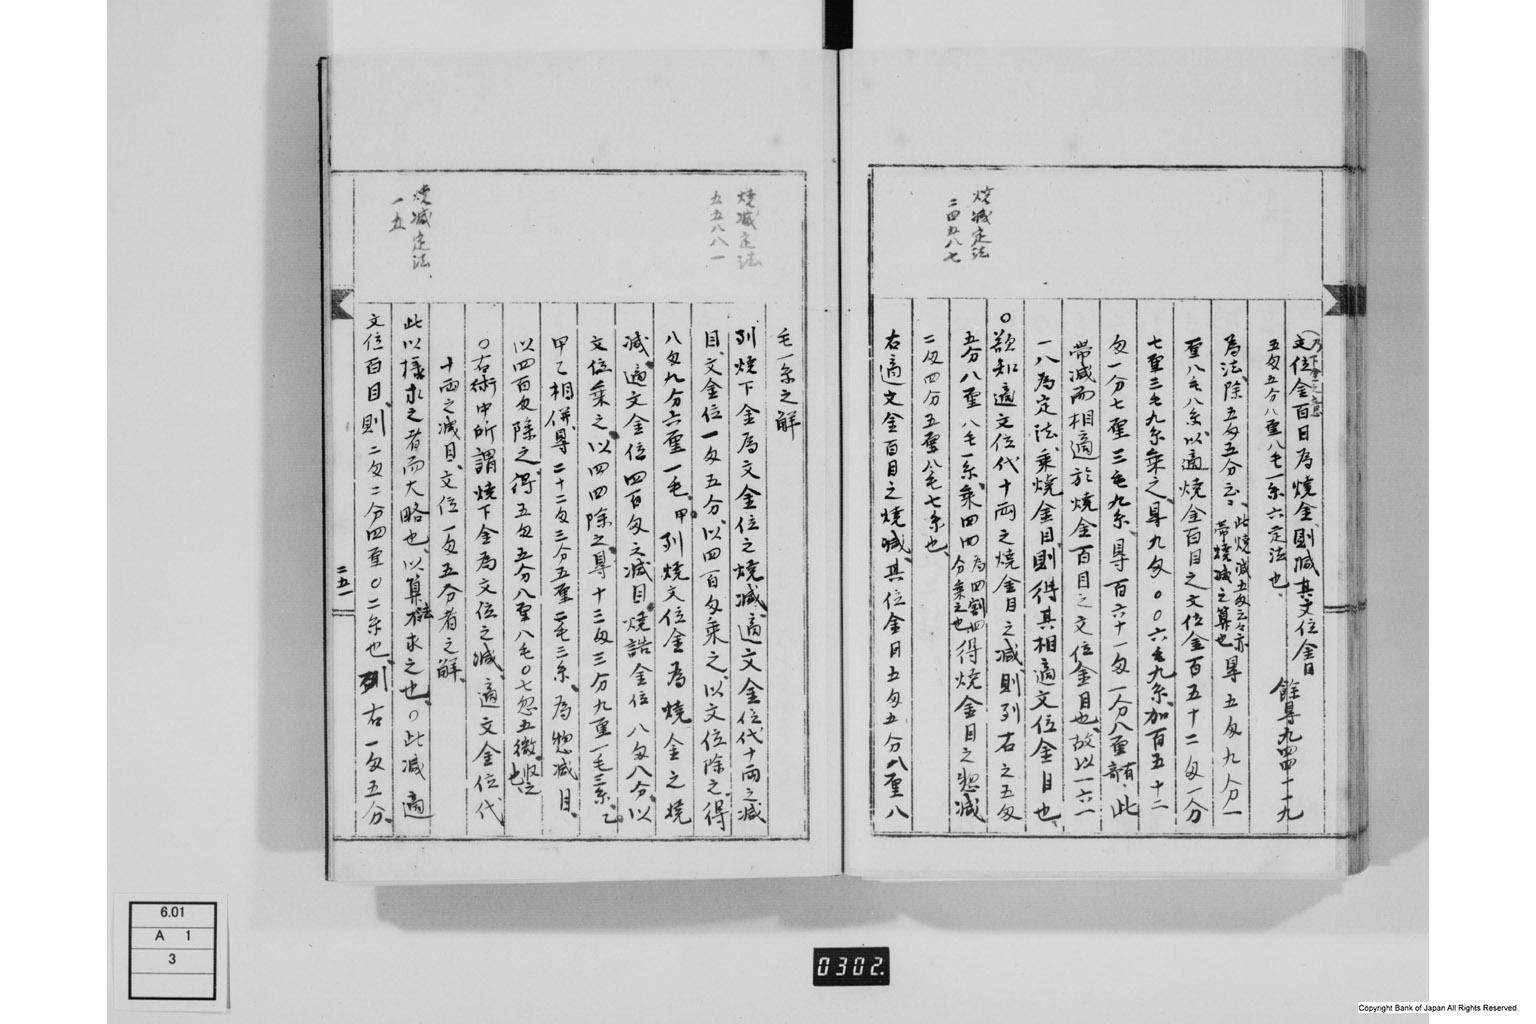 焼減定法
二四五八七
文位金百目為焼金則減其文位金目 餘㝵九四四一一九
五匁五分八厘八毛一糸六定法也、
為法、除五匁五分云〻 此焼減五匁云々亦
帯焼減之算也 㝵五匁九分一
厘八毛八糸、以適焼金百目之文位金百五十二匁一分
七厘三毛九糸乗之、㝵九匁〇〇六毛九糸、加百五十二
匁一分七厘三毛九糸、㝵百六十一匁一分八厘有奇、此
帯減而相適於焼金百目之文位金目也、故以一六一
一八為定法、乗焼金目、則得其相適文位金目也、
〇欲知適文位代十両之焼金目之減、則列右之五匁
五分八厘八毛一糸、乗四四 為四割四
分乗之也 得焼金目之惣減
二匁四分五厘八毛七糸也、
右適文金百目之焼減、其位金目五匁五分八厘八
焼減定法
五五八八一
焼減定法
一五
毛一糸之解
列焼下金為文金位之焼減、適文金位代十両之減
目、文金位一匁五分、以四百匁乗之、以文位除之、得
八匁九分六厘一毛、甲列焼文位金為焼金之焼
減、適文金位四百匁之減目、焼詰金位八匁八分、以
文位乗之、以四四除之、㝵十三匁三分九厘一毛三糸、乙
甲乙相併、㝵二十二匁三分五厘二毛三糸、為惣減目、
以四百匁除之、得五匁五分八厘八毛〇七忽五微、収之也、
〇右術中所謂焼下金為文位之減、適文金位代
十両之減目、文位一匁五分者之解、
此以様求之者而大略也、以算法不求之也、〇此減適
文位百目、則二匁二分四厘〇二糸也、列右一匁五分、
二五一
6.01
A 1
3
0302.
Copyright Bank of Japan All Rights Reserved.